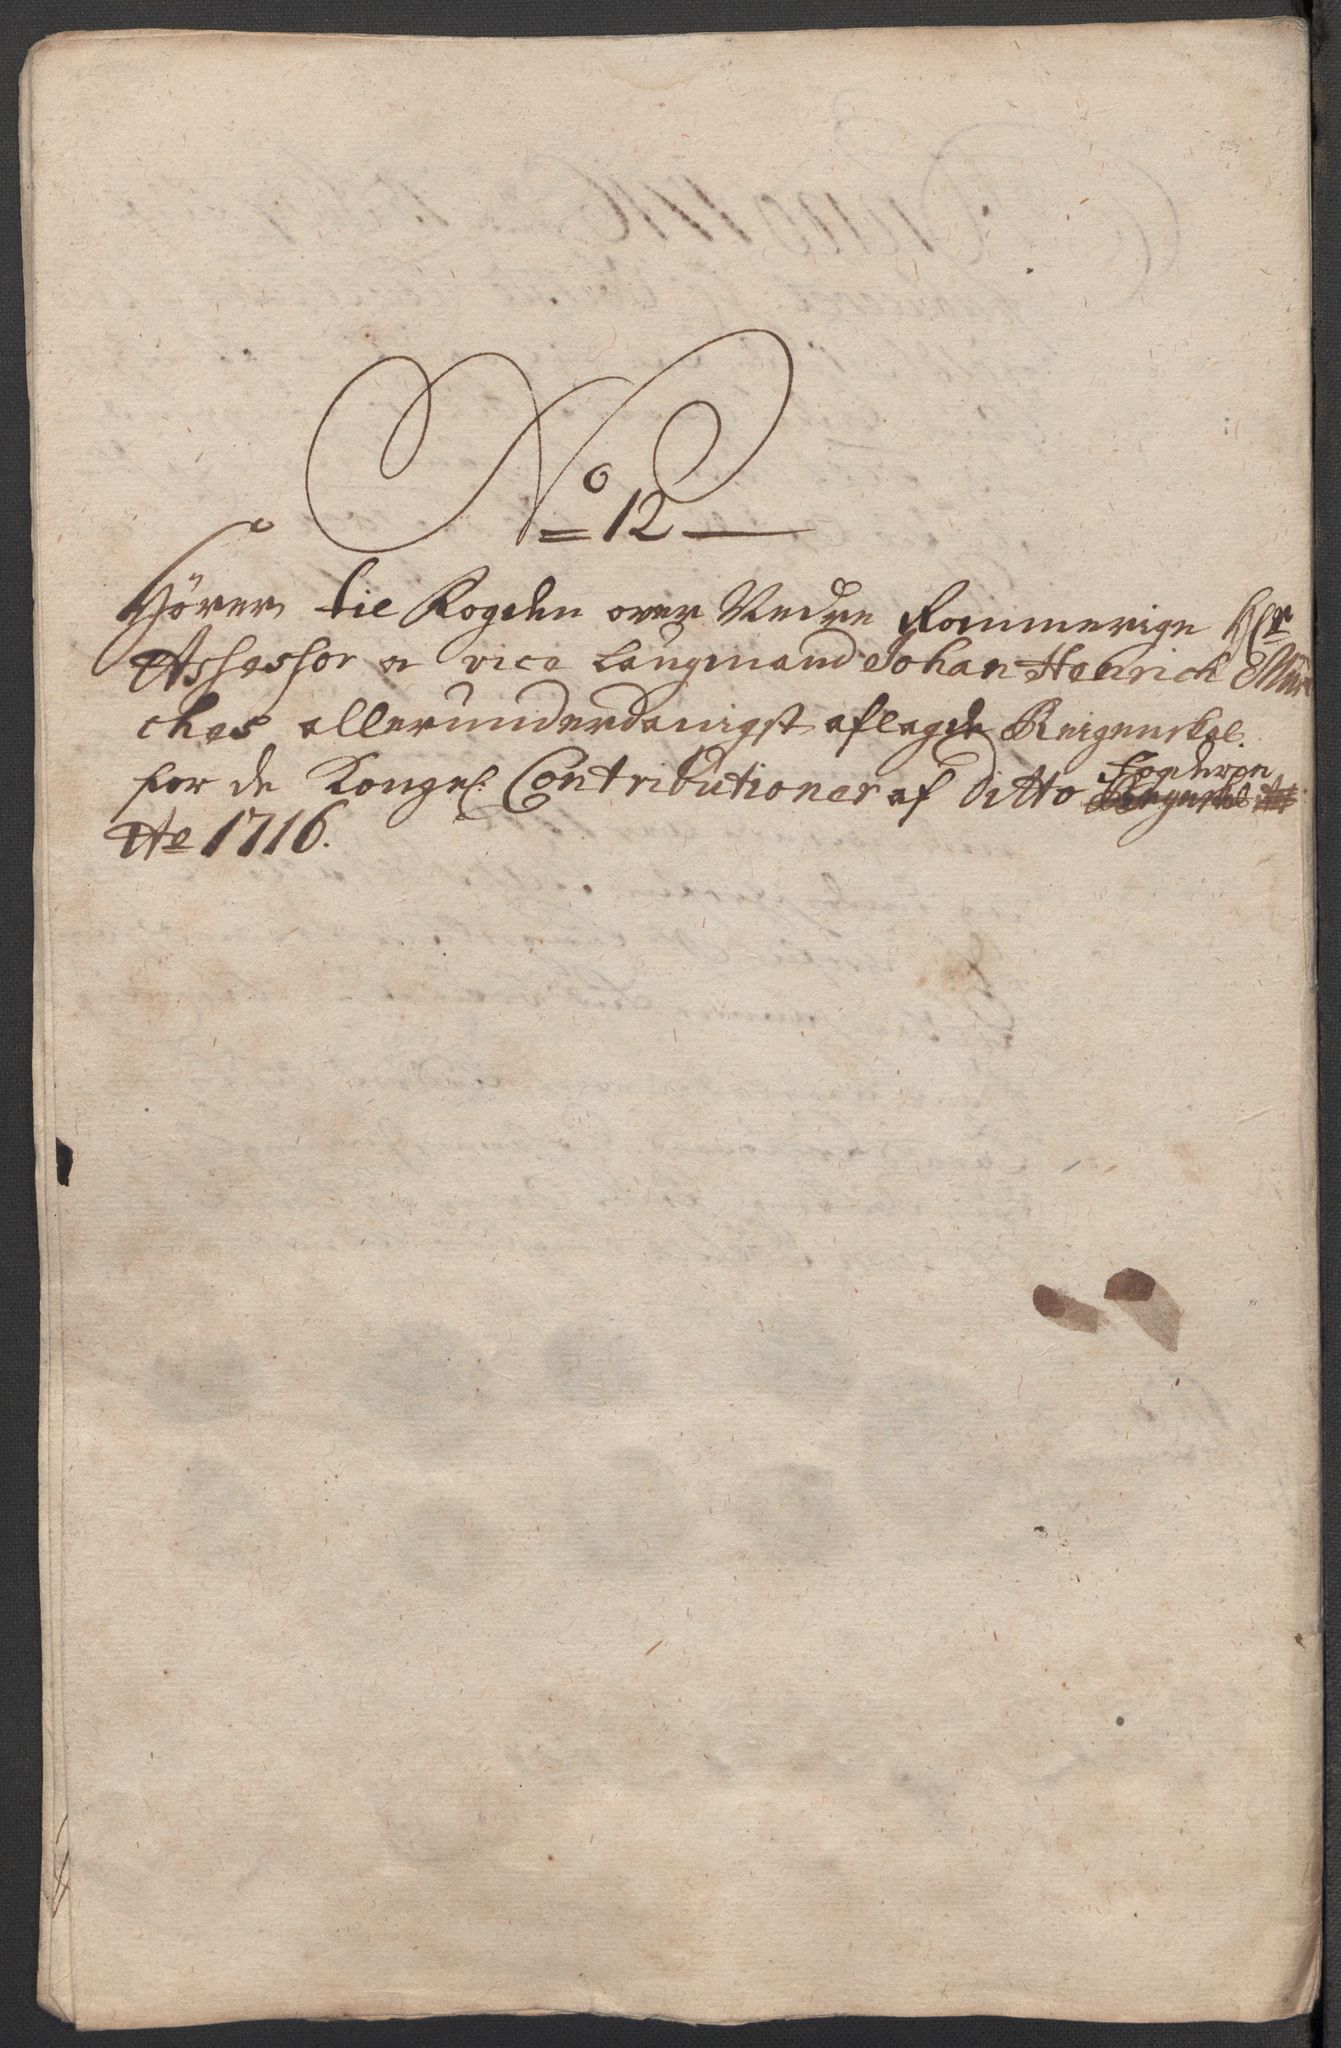 No 12
Hörer til Fogden over Nedre Rommerige Hr
Assessor og vice Laugmand Johan Henrich Mün
ches allerunderdanigst aflagde Reigenskab.
for de Kongel: Contributioner af Ditto Fogderie
Ao 1716.